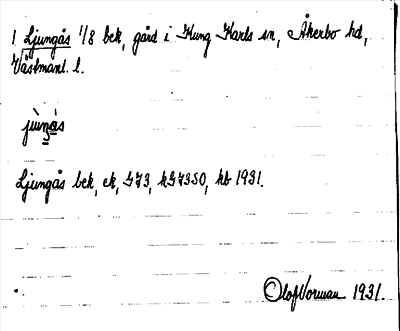 1 Ljungås 1/8 bek, gård i Kung Karls sn, Åkerbo hd,
Västmanl. l.
jùŋás
Ljungås bek, ek, G73, hG73SO, kb 1931.
Olof Norman 1931.